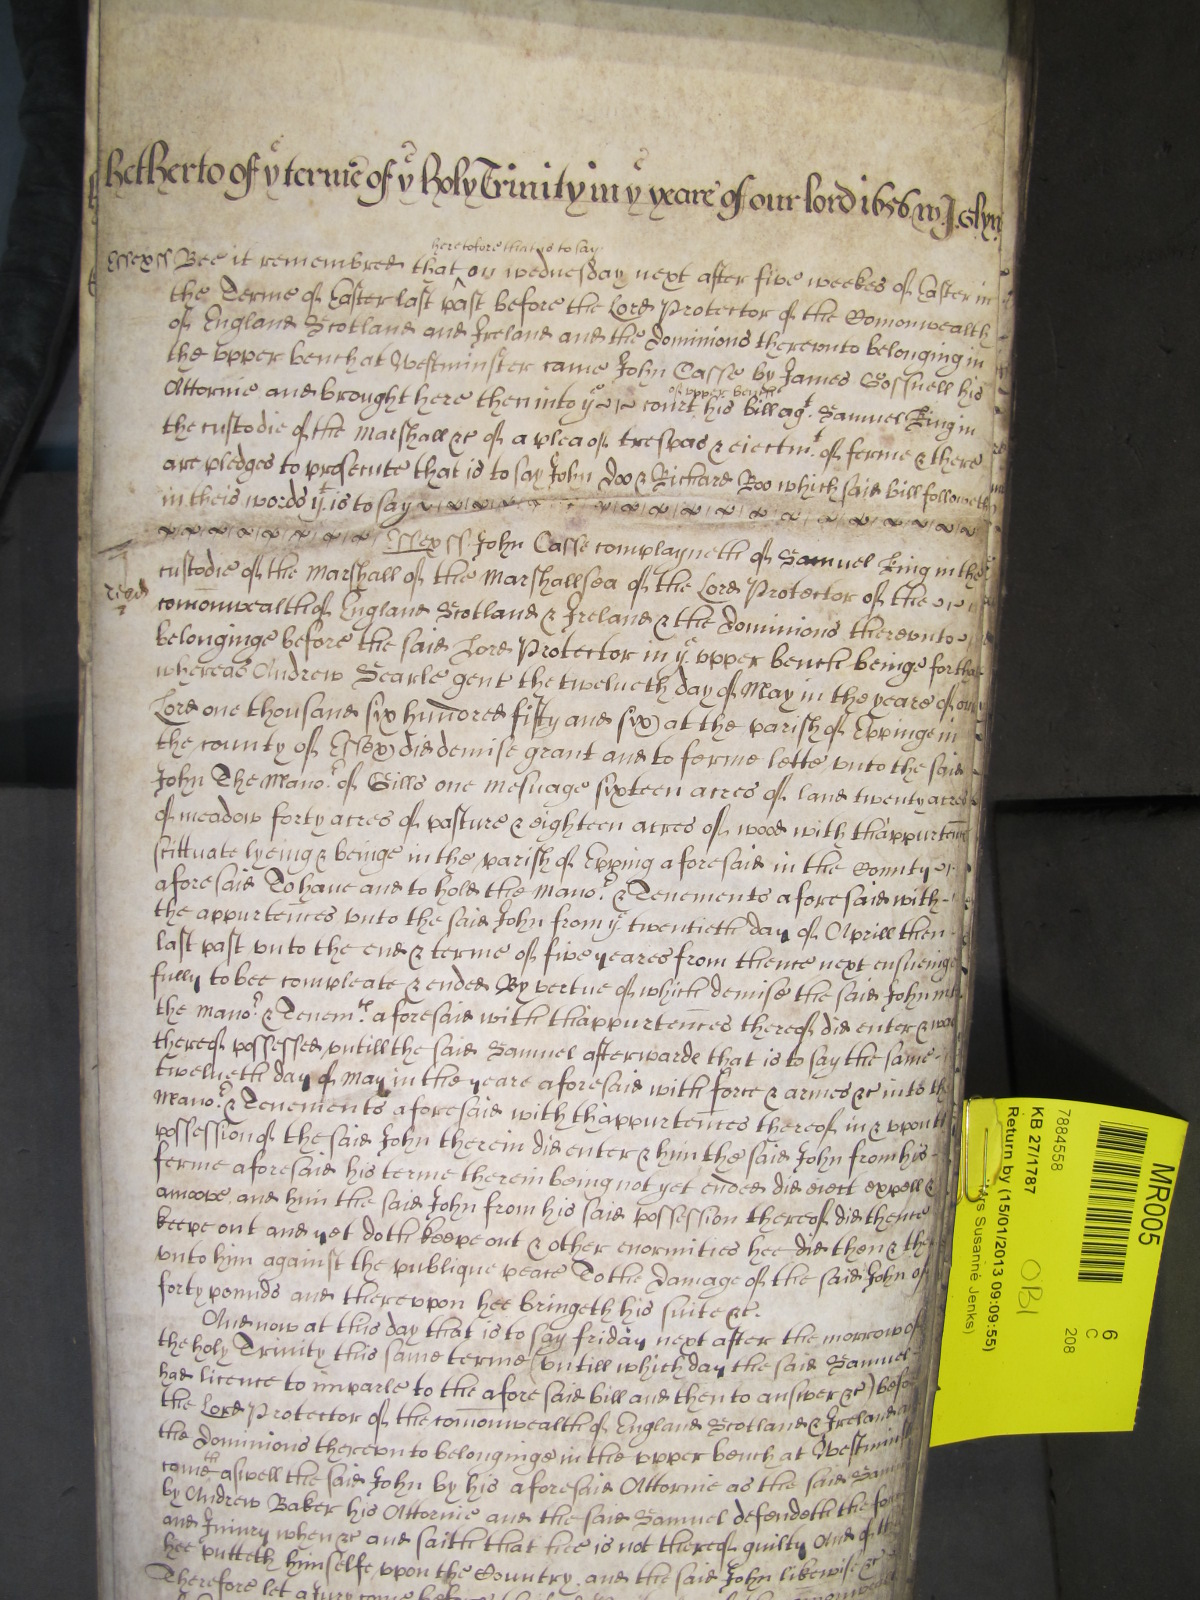 hetherto of ye terme of ye holy Trinity in ye yeare of our lord 1656
heretofore that is to say
Essex ss Bee it remembred that on wednesday next after five weekes of Easter in
the Terme of Easter last past before the Lord Protector of the Comonwealth
of England Scotland and Ireland and the dominions therevnto belonging in
the vpper bench at Westminster came John Casse by James Gossnell his
of vpper bench
Attornie and brought here then into ye court his bill agt. Samuel King in
the custodie of the Marshall &c of a plea of trespas & eiectmt. of ferme & there
are pledges to prosecute that is to say John Doo & Richard Roo which said bill followeth
in theis words yt. is to say
Essex ss. John Casse complayneth of Samuel King in the
custodie of the Marshall of the Marshallsea of the Lord Protector of the
comonwealth of England Scotland & Ireland & the dominions therevnto
belonginge before the said Lord Protector in ye vpper bench beinge for that
whereas Andrew Searle gent the twelueth day of May in the yeare of our
Lord one thousand six hundred fifty and six at the parish of Eppinge in
the county of Essex did demise grant and to ferme lette vnto the said
John The Manor. of Gills one mesuage sixteen acres of land twenty acres
of meadow forty acres of pasture & eighteen acres of wood with thappurtences
scittuate lyeing & beinge in the parish of Epping aforesaid in the County
aforesaid To haue and to hold the Manor. & Tenements aforesaid with
the appurtences vnto the said John from ye twentieth day of Aprill then
last past vnto the end & terme of five yeares from thence next ensueinge
fully to bee compleate & ended By vertue of which demise the said John into
the Manor. & Tenemts. aforesaid with thappurtences thereof did enter & was
thereof possessed vntill the said Samuel afterwards that is to say the same
twelueth day of May in the yeare aforesaid with force & armes &c into the
Manor. & Tenements aforesaid with thappurtences thereof in & vpon the
possession of the said John therein did enter & him the said John from his
ferme aforesaid his terme therein being not yet ended did eiect expell &
amoove and him the said John from his said possession thereof did thence
keepe out and yet doth keepe out & other enormities hee did then & there
vnto him against the publique peace To the damage of the said John of
forty pounds and therevpon hee bringeth his suite &c.
And now at this day that is to say friday next after the morrow of
the holy Trinity this same terme (vntill which day the said Samuel
had licence to imparle to the aforesaid bill and then to answer &c) before
the Lord Protector of the comonwealth of England Scotland & Ireland and
the dominions therevnto belonginge in the vpper bench at Westminster
cometh aswell the said John by his aforesaid Attornie as the said Samuel
by Andrew Baker his Attornie and the said Samuel defendeth the force
and Iniury when &c and saith that hee is not thereof guilty And of this
hee putteth himselfe vpon the Country. and the said John likewise &c
Therefore let a Jury come
MR005
6
C
208
7884558
KB 27/1787
OBI
Return by (15/01/2013 09:09:55)
Mrs Susanne Jenks)